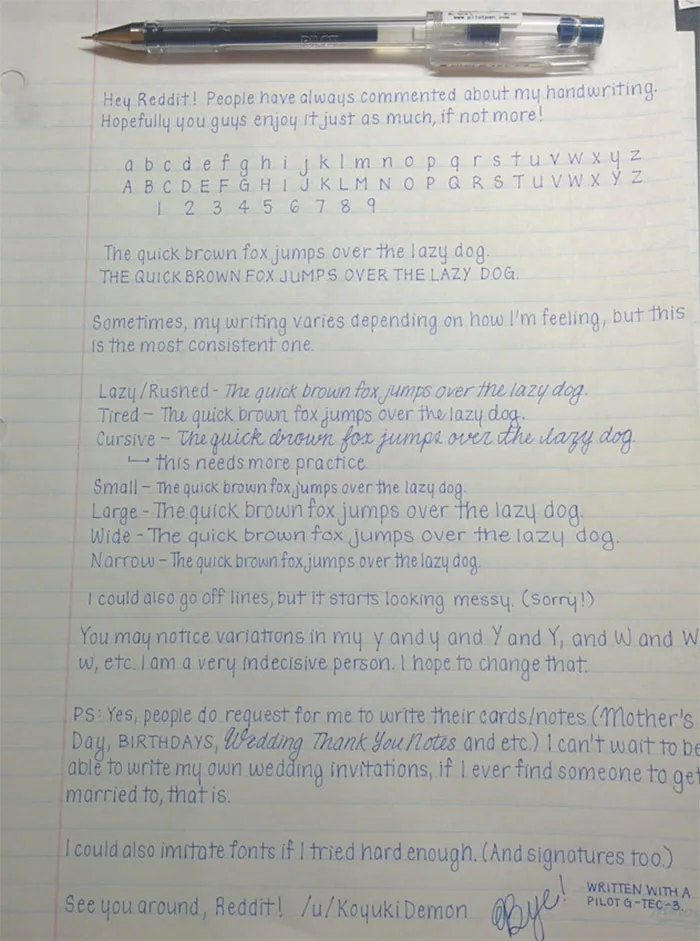 www.pilotpen.com
PILOT
Hey Reddit! People have always commented about my handwriting.
Hopefully you guys enjoy it just as much, if not more!
a b c d e f g h i j k l m n o p q r s t u v w x y z
A B C D E F G H I J K L M N O P Q R S T U V W X Y Z
1 2 3 4 5 6 7 8 9
The quick brown fox jumps over the lazy dog.
THE QUICK BROWN FOX JUMPS OVER THE LAZY DOG.
Sometimes, my writing varies depending on how I'm feeling, but this
is the most consistent one.
Lazy/Rushed - The quick brown fox jumps over the lazy dog.
Tired - The quick brown fox jumps over the lazy dog.
Cursive - The quick brown fox jumps over the lazy dog
↳ this needs more practice
Small - The quick brown fox jumps over the lazy dog.
Large - The quick brown fox jumps over the lazy dog.
Wide - The quick brown fox jumps over the lazy dog.
Narrow - The quick brown fox jumps over the lazy dog.
I could also go off lines, but it starts looking messy. (Sorry!)
You may notice variations in my y and y and Y and Y, and W and W
w, etc. I am a very indecisive person. I hope to change that.
PS: Yes, people do request for me to write their cards/notes (Mother's
Day, BIRTHDAYS, Wedding Thank You Notes and etc.) I can't wait to be
able to write my own wedding invitations, if I ever find someone to get
married to, that is.
I could also imitate fonts if I tried hard enough. (And signatures too.)
See you around, Reddit! /u/KoyukiDemon Bye!
WRITTEN WITH A
PILOT G-TEC-3.